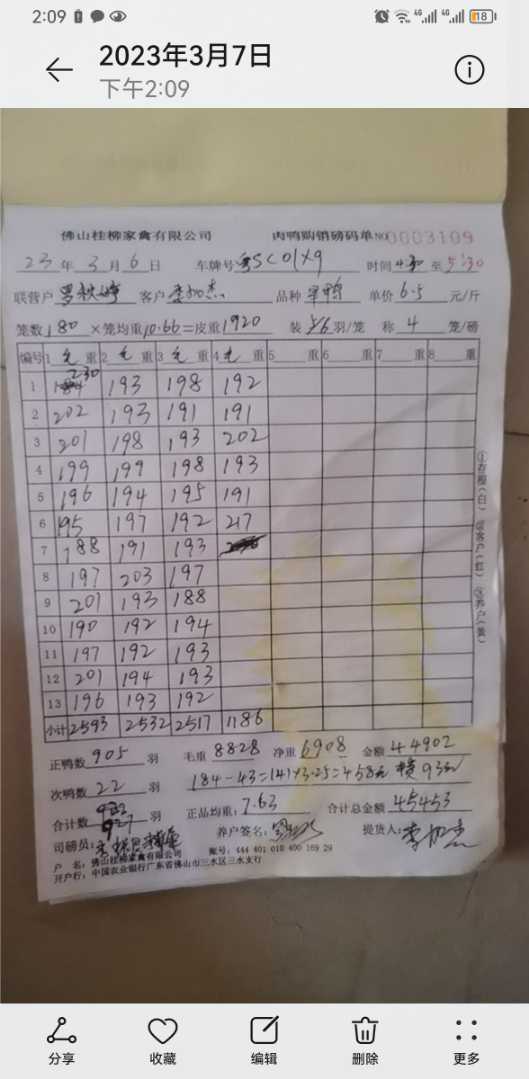 2:09 4G 4G 18
2023年3月7日
下午2:09
佛山桂柳家禽有限公司 肉鸭购销磅码单 NO 0003109
23 年 3 月 6 日 车牌号 时间 4:30 至 5:30
联营户 客户 品种 单价 6.5 元/斤
笼数 180 ×笼均重 10.66 =皮重 1920 装 5/6 羽/笼 称 4 笼/磅
编号 1 毛 重 2 毛 重 3 毛 重 4 毛 重 5 重 6 重 7 重 8 重
1 230 193 198 192
2 202 193 191 191
3 201 198 193 202
4 199 199 198 193
5 196 194 195 191
6 195 197 192 217
7 188 191 193
8 197 203 197
9 201 193 188
10 190 192 194
11 197 192 193
12 201 194 193
13 196 193 192
小计 2593 2532 2517 1186
①存根(白) ②客户(红) ③养户(黄)
正鸭数 905 羽 毛重 8828 净重 6908 金额 44902
次鸭数 22 羽 184-43=141×3.25=458元 93元
合计数 927 羽 正品均重: 7.63 合计总金额 45453
司磅员: 养户签名: 提货人:
户 名: 佛山桂柳家禽有限公司 账号: 444 401 010 400 169 29
开户行: 中国农业银行广东省佛山市三水区三水支行
分享 收藏 编辑 删除 更多